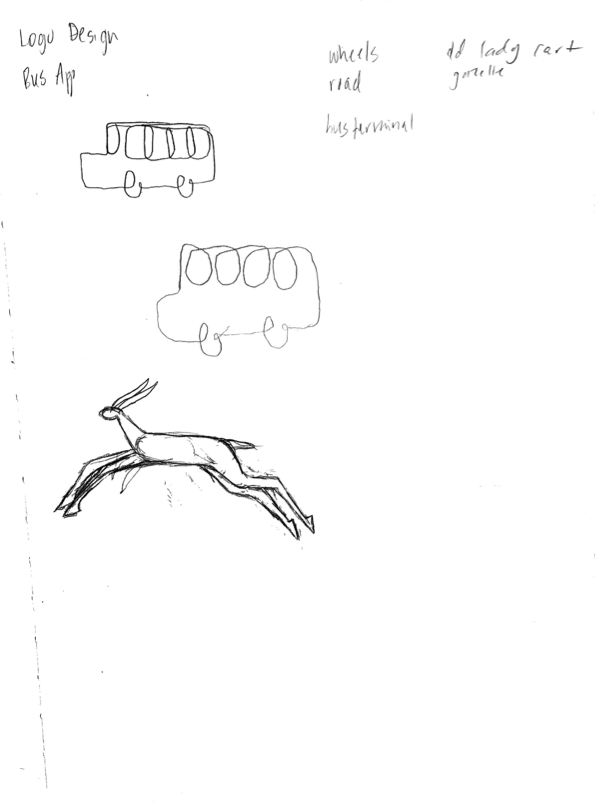 Logo Design
Bus App
wheels
road
bus terminal
old lady cart
gazelle